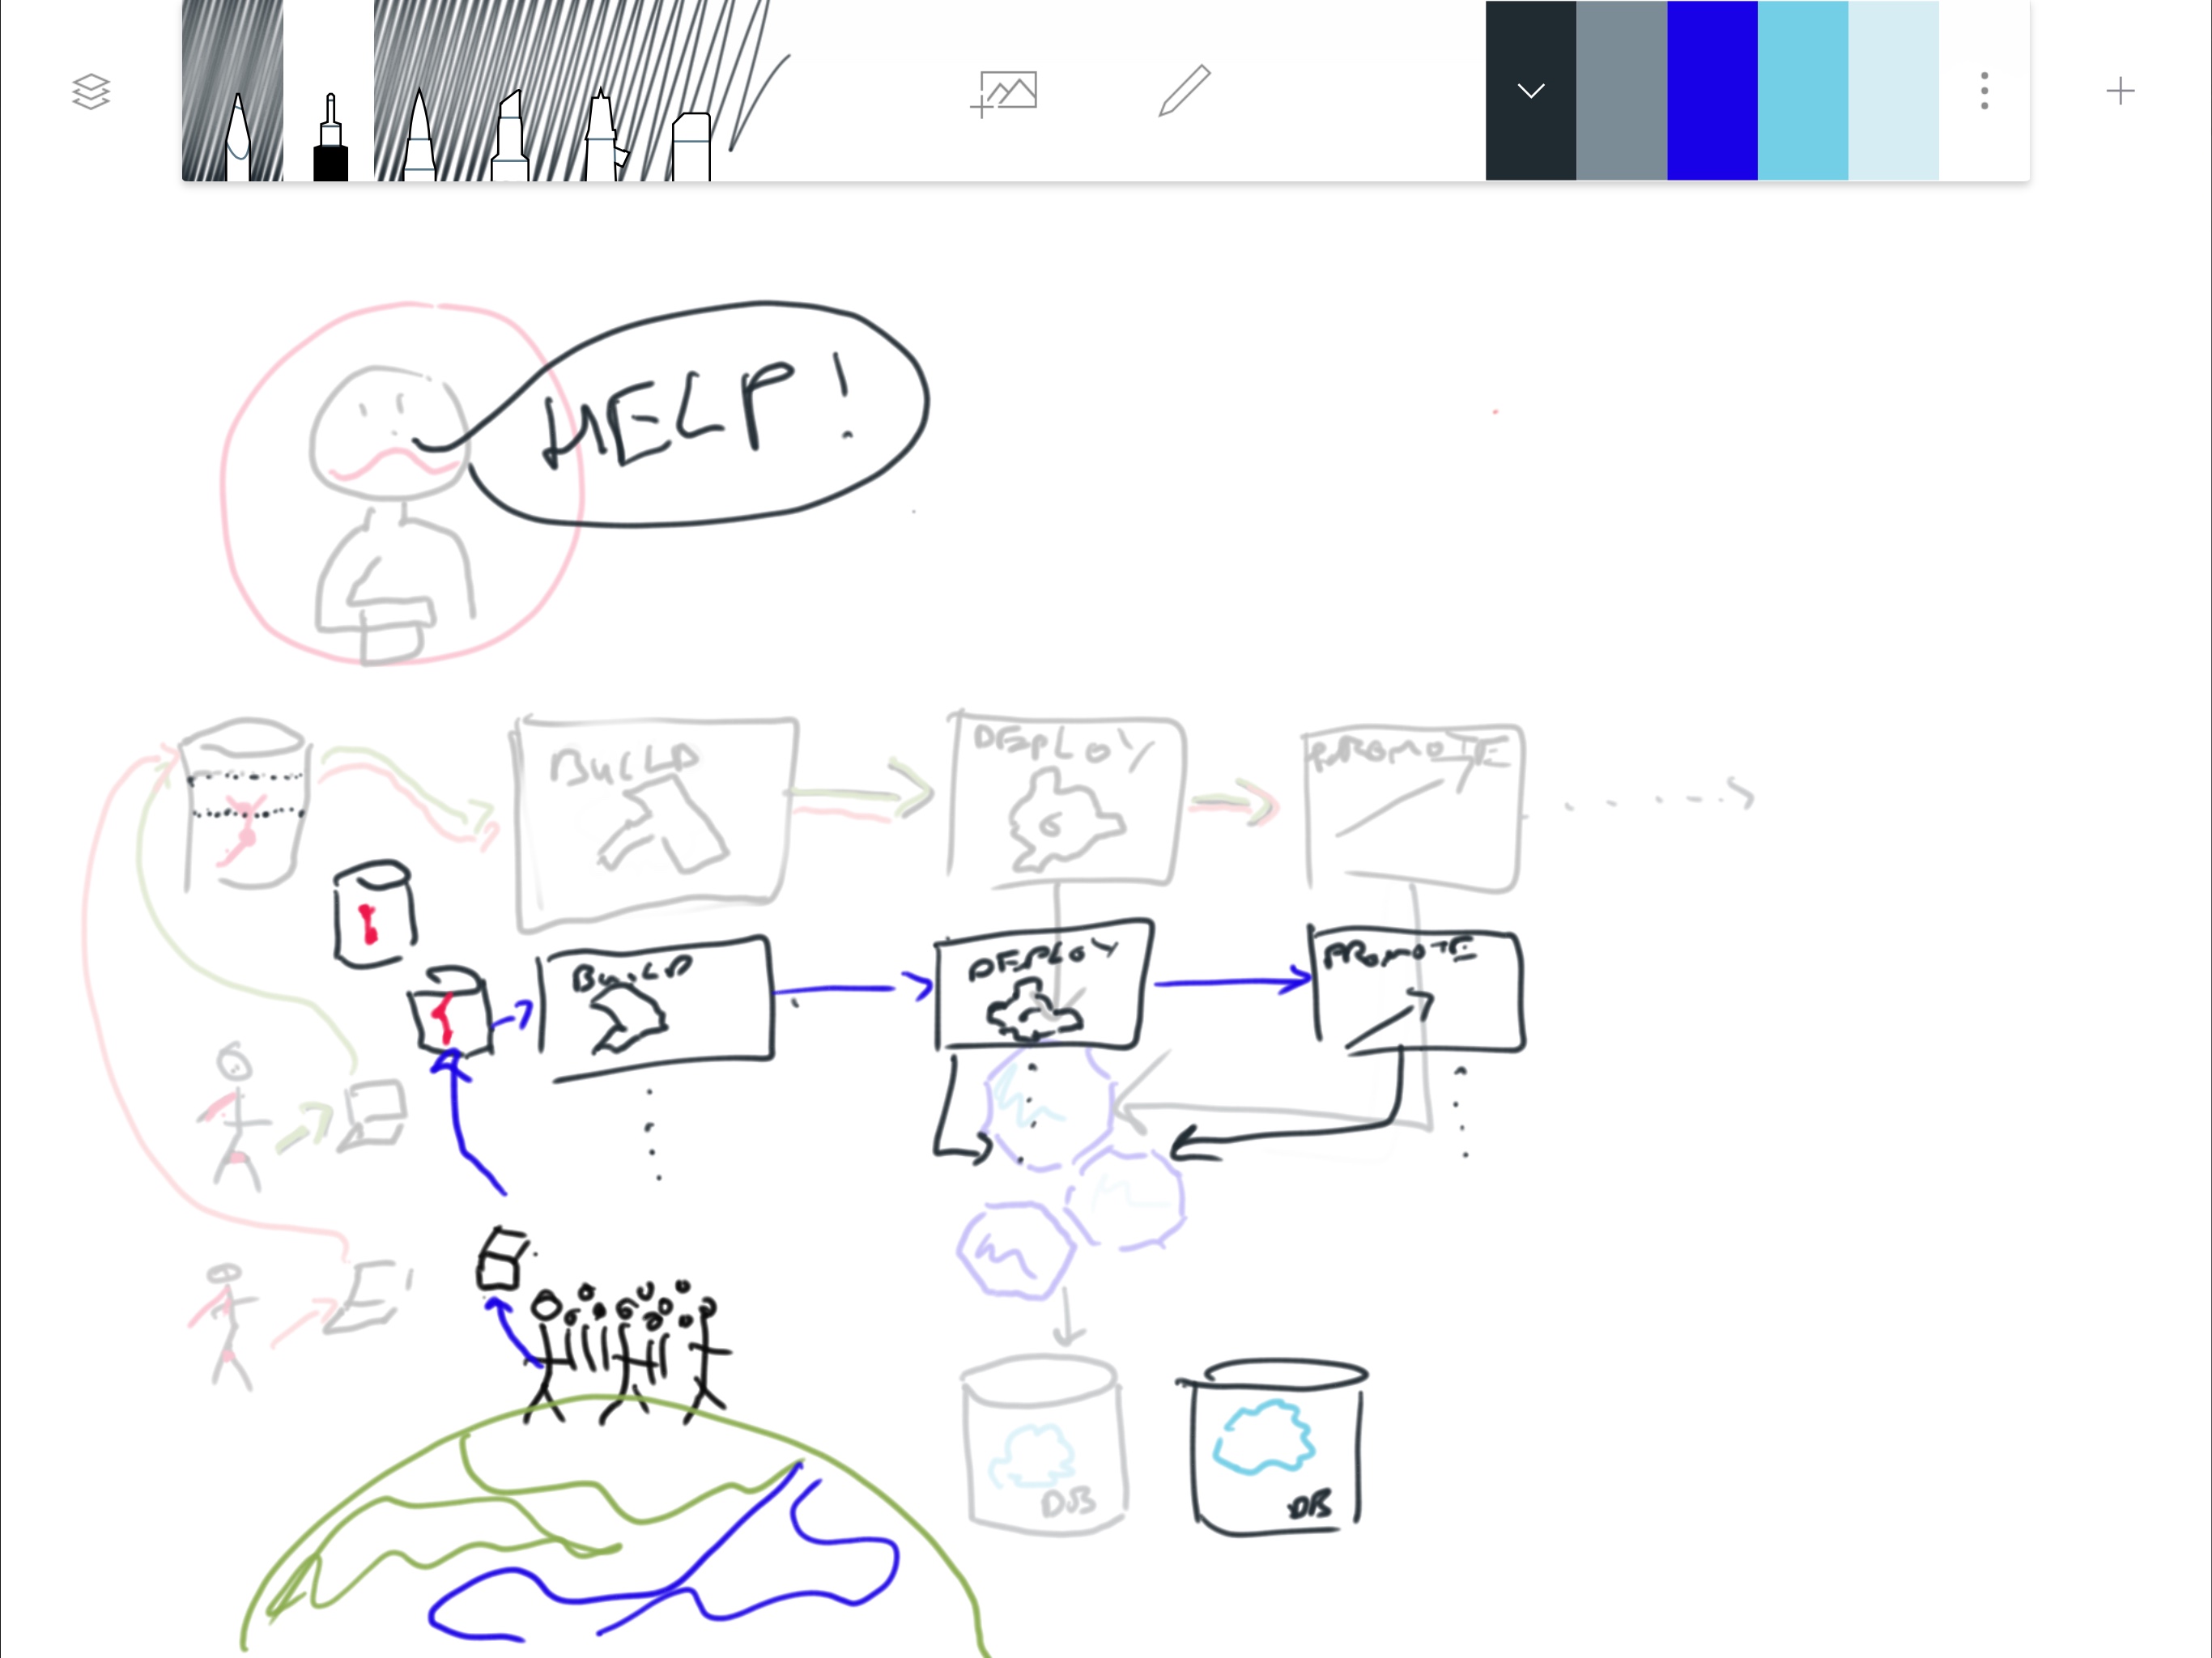 HELP!
BUILD
DEPLOY
PROMOTE
BUILD
DEPLOY
PROMOTE
DB
DB